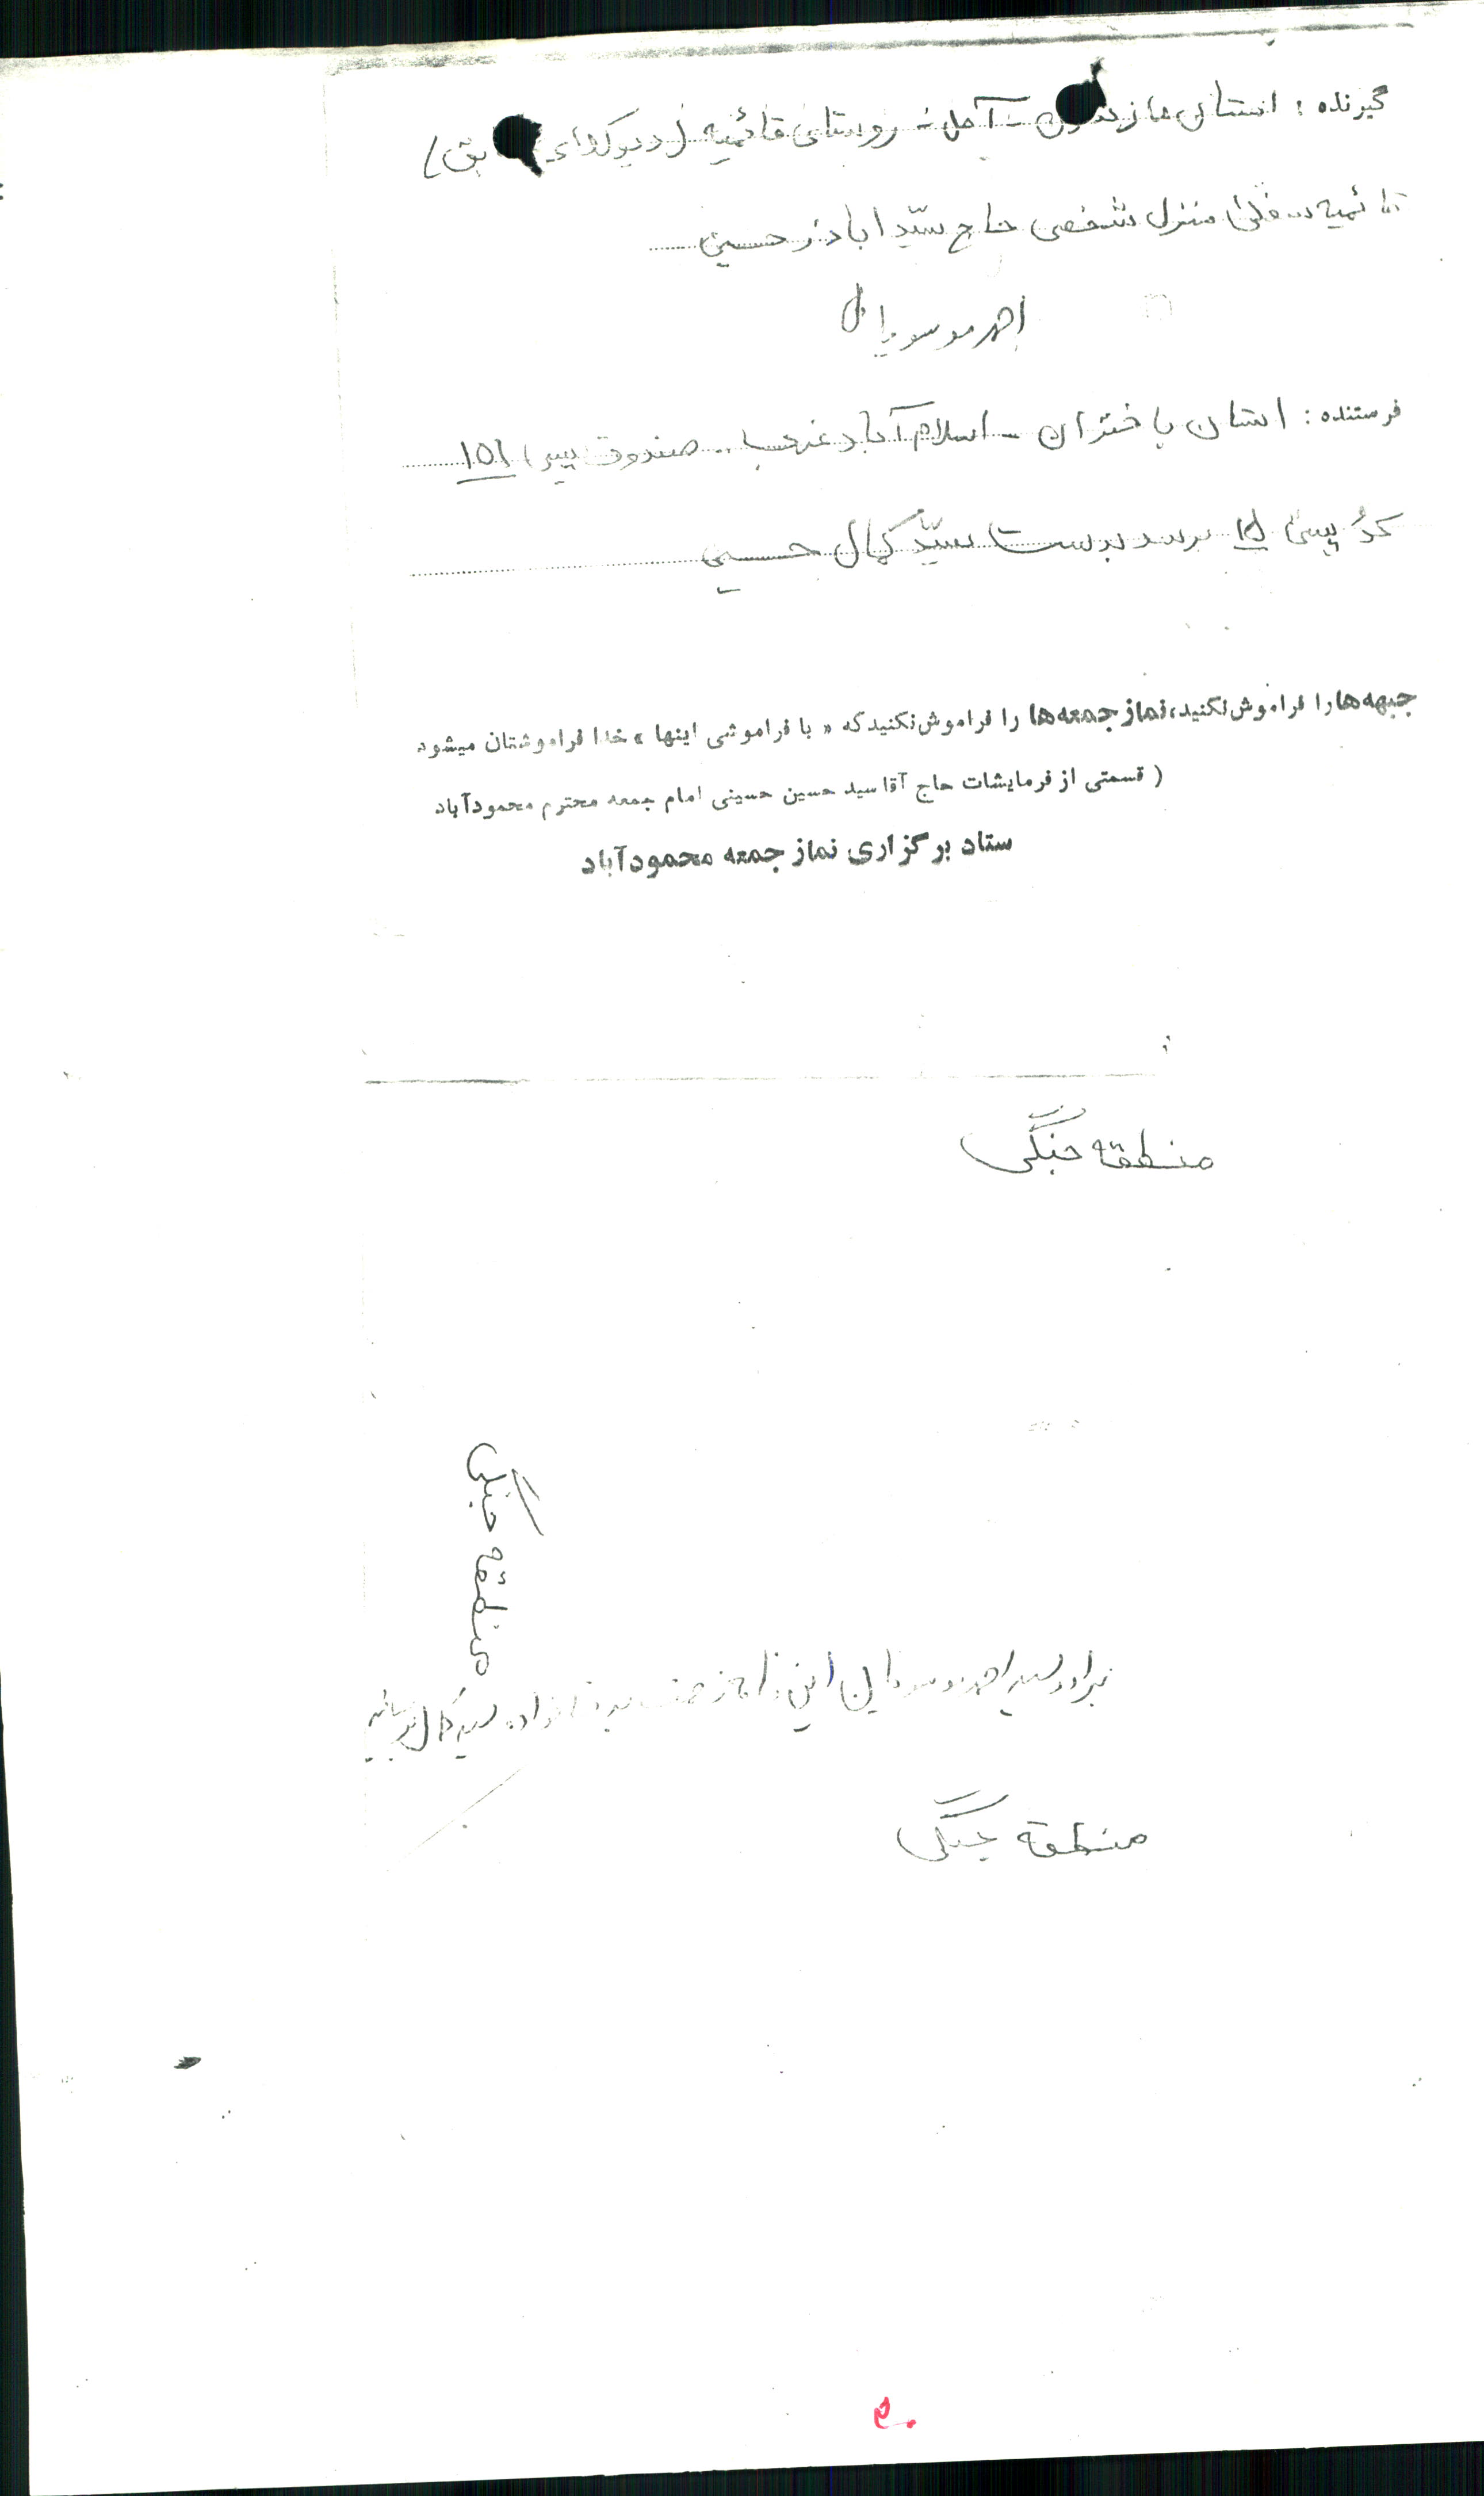 گیرنده : استان مازندران - آمل - روستای قائمیه (دیوکلای سابق)
قائمیه سفلی منزل شخصی حاج سیّد اباذر حسینی
احمد موسویان
فرستنده : استان باختران - اسلام آباد غرب - صندوق پستی ۱۵۱
کد پستی ۱۵ برسد بدست سیّد کمال حسینی
جبهه‌ها را فراموش نکنید، نماز جمعه‌ها را فراموش نکنید که « با فراموشی اینها » خدا فراموشتان میشود
( قسمتی از فرمایشات حاج آقا سید حسین حسینی امام جمعه محترم محمودآباد
ستاد برگزاری نماز جمعه محمودآباد
منطقه جنگی
منطقه جنگی
برادر سید احمد این نامه سید کمال
منطقه جنگی